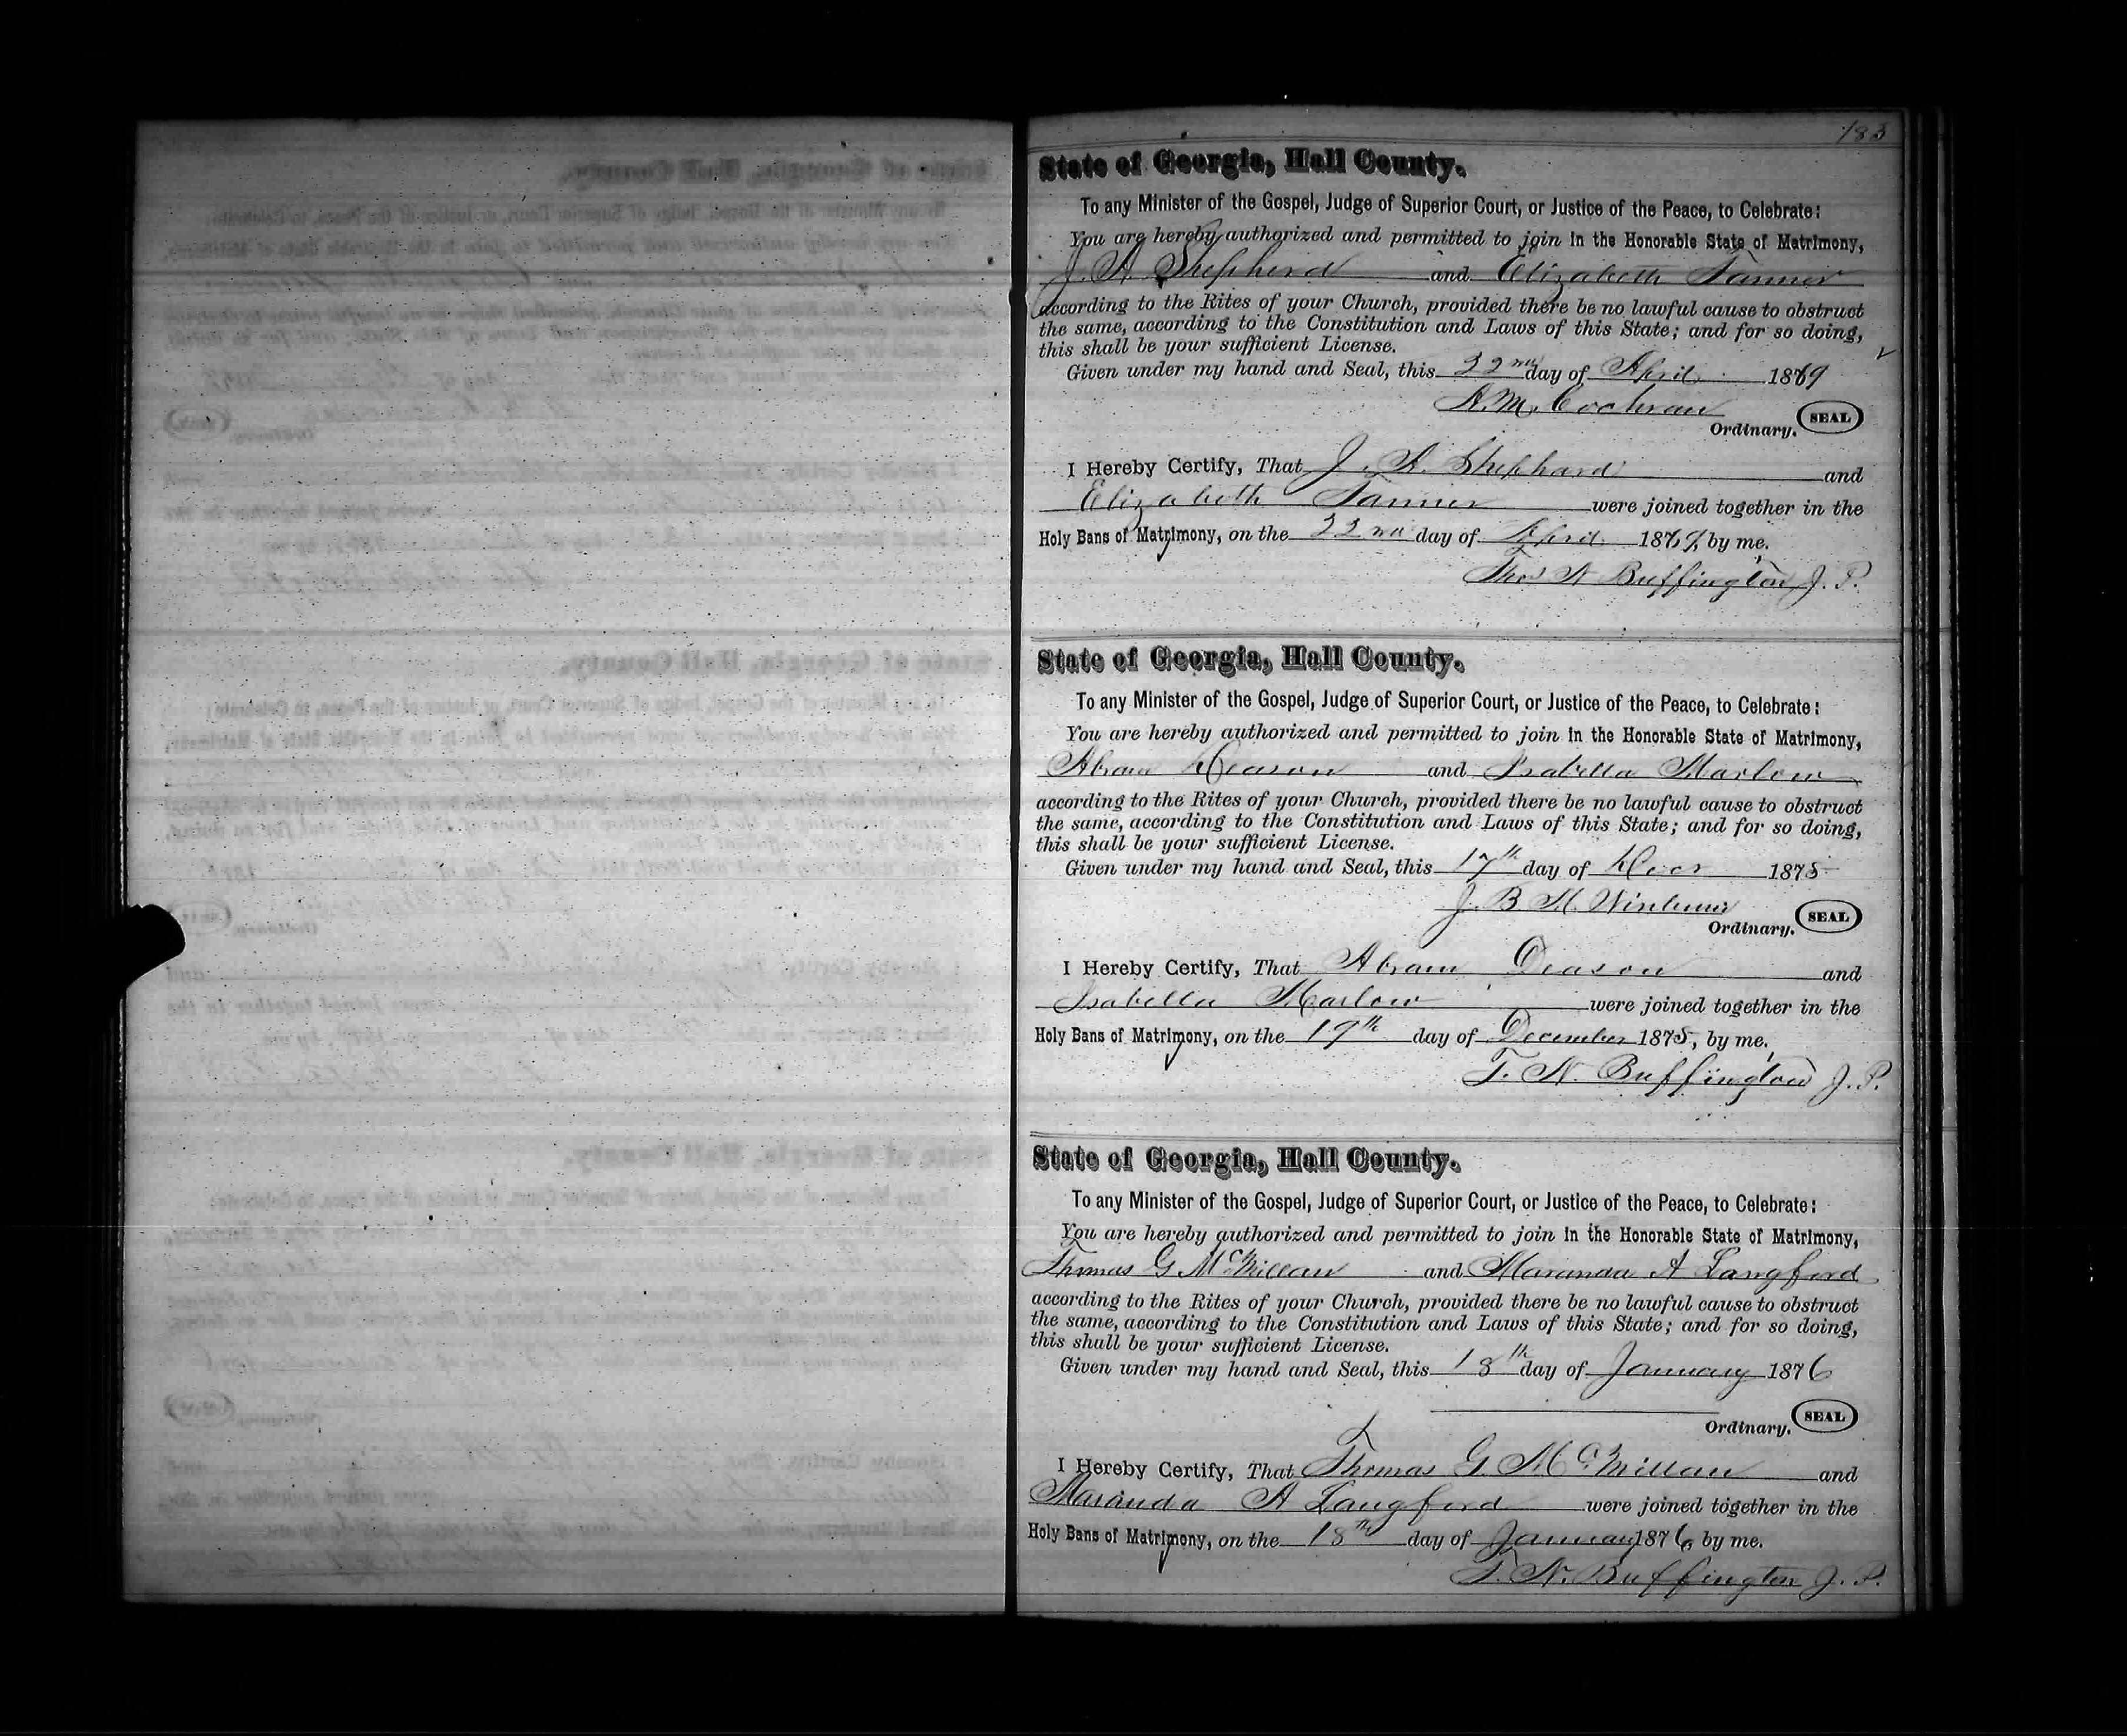 183
State of Georgia, Hall County.
To any Minister of the Gospel, Judge of Superior Court, or Justice of the Peace, to Celebrate:
You are hereby authorized and permitted to join in the Honorable State of Matrimony,
J. A. Shepherd and Elizabeth Tanner
according to the Rites of your Church, provided there be no lawful cause to obstruct
the same, according to the Constitution and Laws of this State; and for so doing,
this shall be your sufficient License.
Given under my hand and Seal, this 22nd day of April 1869
A. M. Cochran
Ordinary. SEAL
I Hereby Certify, That J. A. Shephard and
Elizabeth Tanner were joined together in the
Holy Bans of Matrimony, on the 22nd day of April 1869, by me.
Thos N Buffington J. P.
State of Georgia, Hall County.
To any Minister of the Gospel, Judge of Superior Court, or Justice of the Peace, to Celebrate:
You are hereby authorized and permitted to join in the Honorable State of Matrimony,
Abram Deason and Isabella Marlow
according to the Rites of your Church, provided there be no lawful cause to obstruct
the same, according to the Constitution and Laws of this State; and for so doing,
this shall be your sufficient License.
Given under my hand and Seal, this 17th day of Decr 1875
J. B. M. Winburn
Ordinary. SEAL
I Hereby Certify, That Abram Deason and
Isabella Marlow were joined together in the
Holy Bans of Matrimony, on the 19th day of December 1875, by me.
T. N. Buffington J. P.
State of Georgia, Hall County.
To any Minister of the Gospel, Judge of Superior Court, or Justice of the Peace, to Celebrate:
You are hereby authorized and permitted to join in the Honorable State of Matrimony,
Thomas G McMillan and Maranda A Langford
according to the Rites of your Church, provided there be no lawful cause to obstruct
the same, according to the Constitution and Laws of this State; and for so doing,
this shall be your sufficient License.
Given under my hand and Seal, this 18th day of January 1876
Ordinary. SEAL
I Hereby Certify, That Thomas G. McMillan and
Maranda A Langford were joined together in the
Holy Bans of Matrimony, on the 18th day of January 1876, by me.
T. N. Buffington J. P.